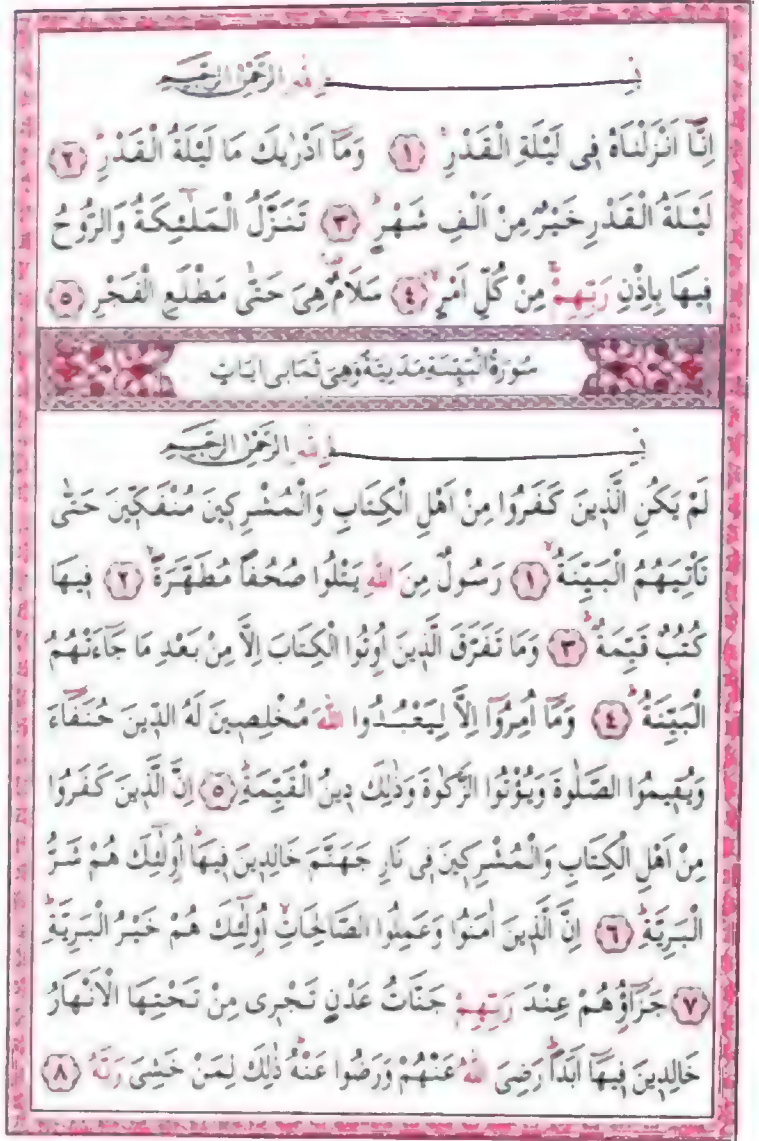 بِسْمِ اللهِ الرَّحْمٰنِ الرَّحِيمِ
اِنَّٓا اَنْزَلْنَاهُ فِى لَيْلَةِ الْقَدْرِۚ ﴿١﴾ وَمَٓا اَدْرٰيكَ مَا لَيْلَةُ الْقَدْرِۜ ﴿٢﴾
لَيْلَةُ الْقَدْرِ خَيْرٌ مِنْ اَلْفِ شَهْرٍۜ ﴿٣﴾ تَنَزَّلُ الْمَلٰٓئِكَةُ وَالرُّوحُ
فِيهَا بِاِذْنِ رَبِّهِمْۚ مِنْ كُلِّ اَمْرٍۙ ﴿٤﴾ سَلَامٌ۠ هِىَ حَتّٰى مَطْلَعِ الْفَجْرِ ﴿٥﴾
سُورَةُ الْبَيِّنَةِ مَدَنِيَّةٌ وَهِىَ ثَمَانِى اٰيَاتٍ
بِسْمِ اللهِ الرَّحْمٰنِ الرَّحِيمِ
لَمْ يَكُنِ الَّذِينَ كَفَرُوا مِنْ اَهْلِ الْكِتَابِ وَالْمُشْرِكِينَ مُنْفَكِّينَ حَتّٰى
تَأْتِيَهُمُ الْبَيِّنَةُۙ ﴿١﴾ رَسُولٌ مِنَ اللهِ يَتْلُوا صُحُفًا مُطَهَّرَةًۙ ﴿٢﴾ فِيهَا
كُتُبٌ قَيِّمَةٌۜ ﴿٣﴾ وَمَا تَفَرَّقَ الَّذِينَ اُوتُوا الْكِتَابَ اِلَّا مِنْ بَعْدِ مَا جَٓاءَتْهُمُ
الْبَيِّنَةُۜ ﴿٤﴾ وَمَٓا اُمِرُٓوا اِلَّا لِيَعْبُدُوا اللهَ مُخْلِصِينَ لَهُ الدِّينَ حُنَفَٓاءَ
وَيُقِيمُوا الصَّلٰوةَ وَيُؤْتُوا الزَّكٰوةَ وَذٰلِكَ دِينُ الْقَيِّمَةِۜ ﴿٥﴾ اِنَّ الَّذِينَ كَفَرُوا
مِنْ اَهْلِ الْكِتَابِ وَالْمُشْرِكِينَ فِى نَارِ جَهَنَّمَ خَالِدِينَ فِيهَاۜ اُو۬لٰٓئِكَ هُمْ شَرُّ
الْبَرِيَّةِۜ ﴿٦﴾ اِنَّ الَّذِينَ اٰمَنُوا وَعَمِلُوا الصَّالِحَاتِۙ اُو۬لٰٓئِكَ هُمْ خَيْرُ الْبَرِيَّةِۜ
﴿٧﴾ جَزَٓاؤُ۬هُمْ عِنْدَ رَبِّهِمْ جَنَّاتُ عَدْنٍ تَجْرِى مِنْ تَحْتِهَا الْاَنْهَارُ
خَالِدِينَ فِيهَٓا اَبَدًاۜ رَضِىَ اللهُ عَنْهُمْ وَرَضُوا عَنْهُۜ ذٰلِكَ لِمَنْ خَشِىَ رَبَّهُ ﴿٨﴾